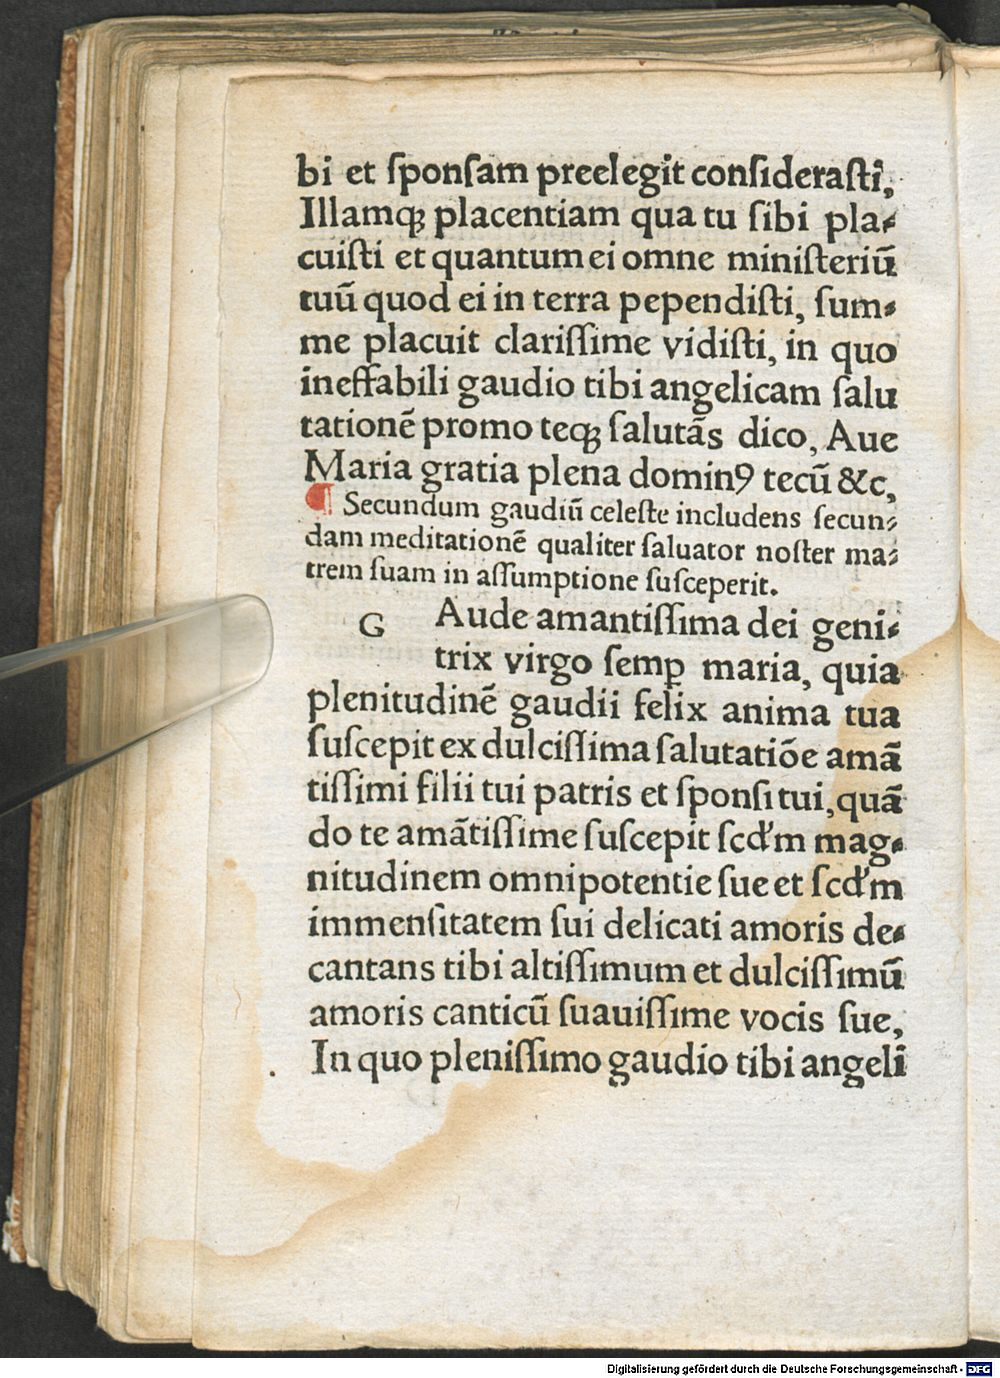 bi et ſponſam preelegit conſideraſtĩ,
Illamqꝫ placentiam qua tu ſibi pla⸗
cuiſti et quantum ei omne miniſteriū
tuū quod ei in terra pependiſti, ſum⸗
me placuit clariſſime vidiſti, in quo
ineffabili gaudio tibi angelicam ſalu
tationē promo teqꝫ ſalutās dico, Aue
Maria gratia plena dominꝰ tecū &c,
¶ Secundum gaudiū celeſte includens ſecun⸗
dam meditationē qualiter ſaluator noſter ma⸗
trem ſuam in aſſumptione ſuſceperit.
G Aude amantiſſima dei geni⸗
trix virgo ſemꝑ maria, quia
plenitudinē gaudii felix anima tua
ſuſcepit ex dulciſſima ſalutatiōe amā
tiſſimi filii tui patris et ſponſi tui, quā
do te amātiſſime ſuſcepit ſcd'm mag⸗
nitudinem omnipotentie ſue et ſcd'm
immenſitatem ſui delicati amoris de⸗
cantans tibi altiſſimum et dulciſſimū
amoris canticū ſuauiſſime vocis ſue,
In quo pleniſſimo gaudio tibi angelī
Digitalisierung gefördert durch die Deutsche Forschungsgemeinschaft - DFG